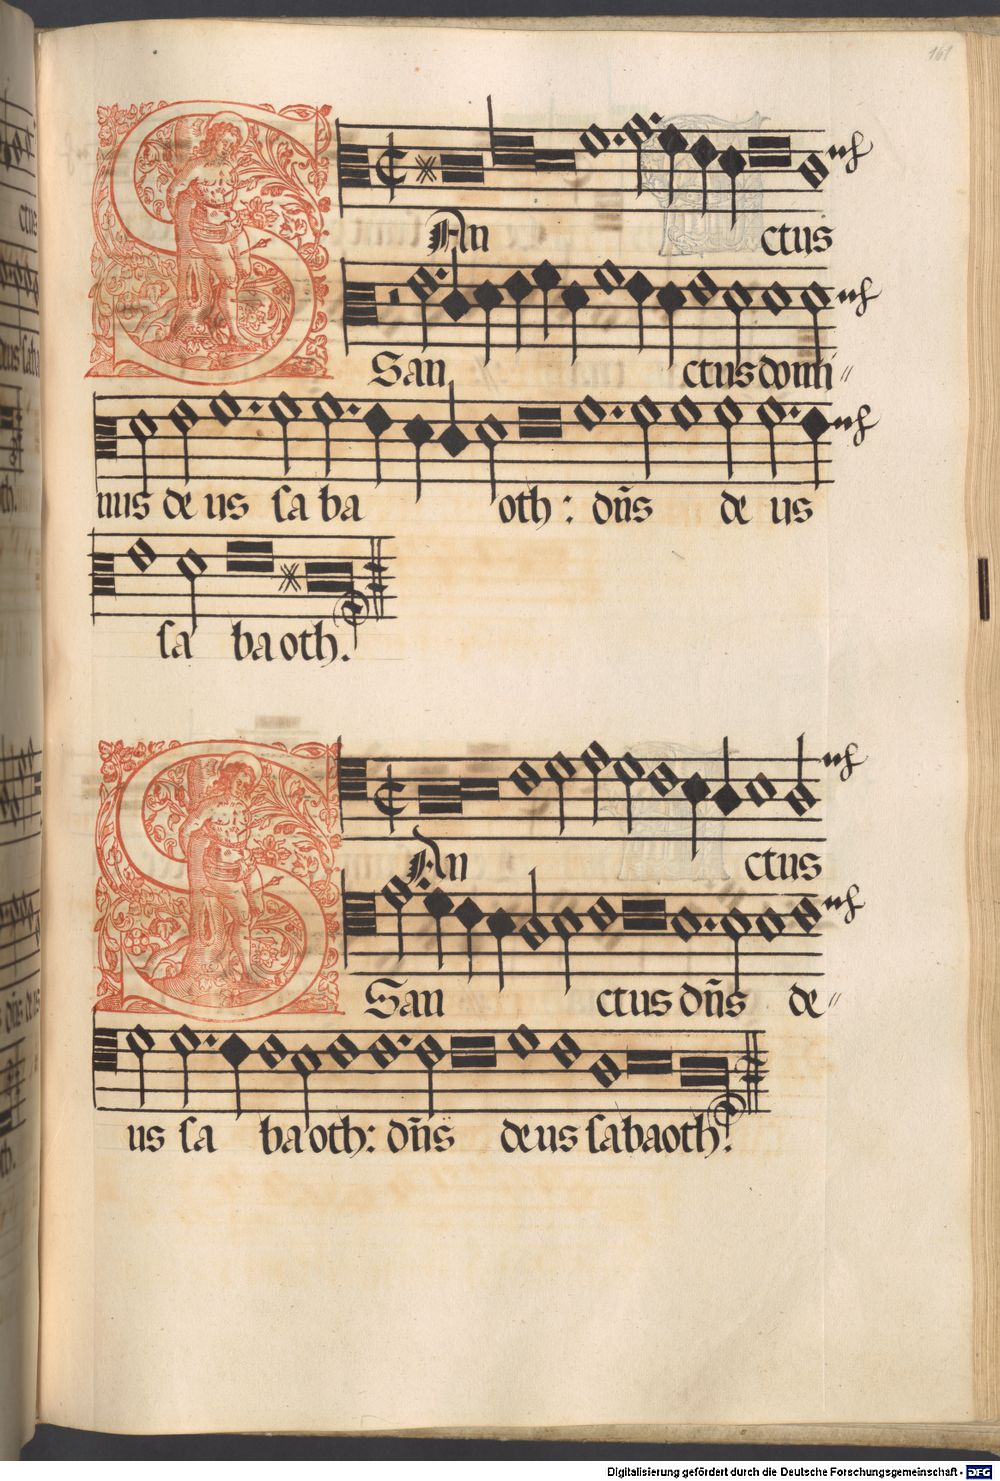 161
SAn ctus
San ctus domi〃
nus de us sa ba oth : dn̄s de us
sa ba oth.
SAn ctus
San ctus dn̄s de〃
us sa ba oth: dn̄s deus sabaoth.
Digitalisierung gefördert durch die Deutsche Forschungsgemeinschaft - DFG